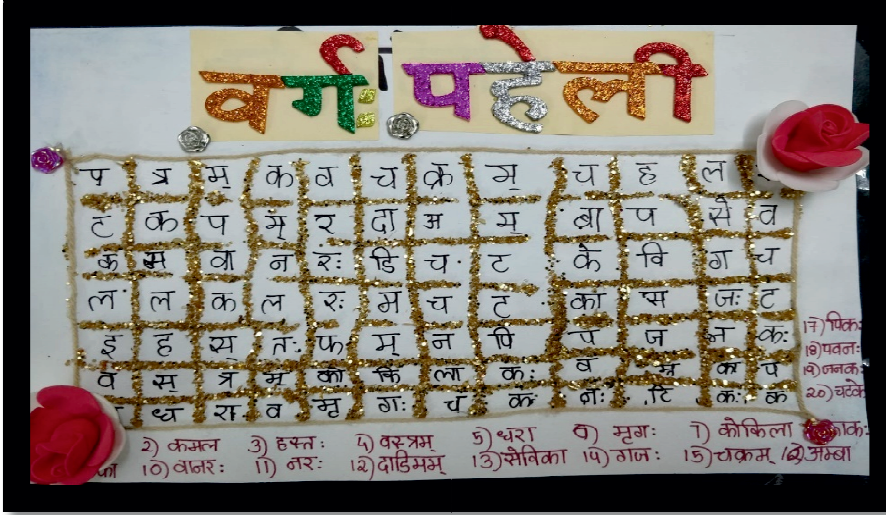 वर्ग: पहेली
प त्र म् क व च क्र म् च ह ल
ट क प म् र दा अ म् बा प से व
क म वा न र: डि च ट के वि ग च
ल ल क ल र: म च ट का स ज: ट
इ ह स् त: फ म् न पि प ज न क:
व स् त्र म् को कि ला क: व म क प
ध रा व मृ ग: च क न: टि क: क
17) पिक:
18) पवन:
19) जनक:
20) चटके
2) कमल 3) हस्त: 4) वस्त्रम् 5) धरा 6) मृग: 7) कोकिला काक:
का 10) वानर: 11) नर: 12) दाडिमम् 13) सेविका 14) गज: 15) चक्रम् 16) अम्बा